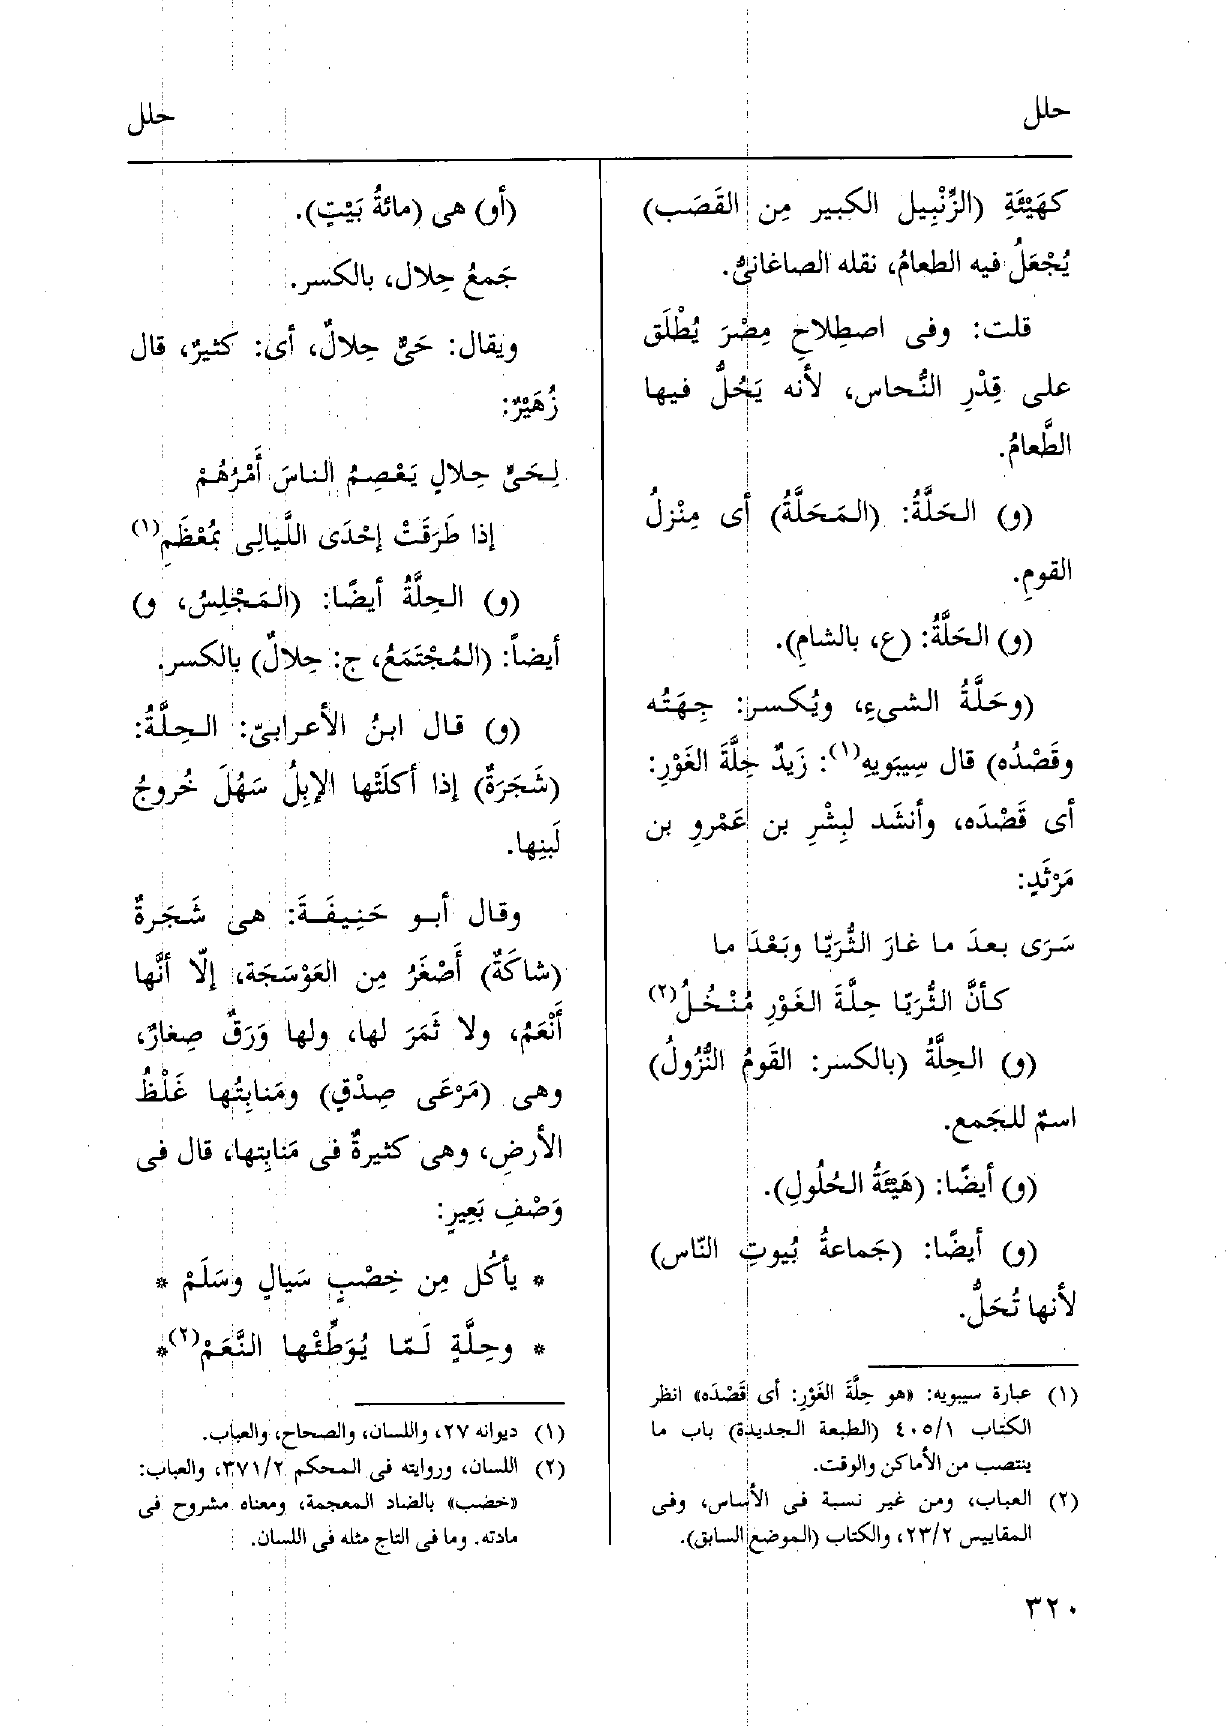 حلل
حلل
كهَيْئَةِ (الزِّنْبِيل الكبير مِن القَصَب)
يُجْعَلُ فيه الطعامُ، نقله الصاغانىُّ.
قلت: وفى اصطِلاحِ مِصْرَ يُطْلَق
على قِدْرِ النُّحاس، لأنه يَحُلُّ فيها
الطَّعامُ.
(و) الحَلَّةُ: (المَحَلَّةُ) أى مِنْزلُ
القومِ.
(و) الحَلَّةُ: (ع، بالشامِ).
(وحَلَّةُ الشىءِ، ويُكسر: جِهَتُه
وقَصْدُه) قال سِيبَويهِ(١): زَيدٌ حِلَّةَ الغَوْرِ:
أى قَصْدَه، وأنشَد لبِشْرِ بن عَمْرو بن
مَرْثَدٍ:
سَرَى بعدَ ما غارَ الثُّرَيّا وبَعْدَما ما
كأنَّ الثُّرَيّا حِلَّةَ الغَوْرِ مُنْخُلُ(٢)
(و) الحِلَّةُ (بالكسر: القَومُ النُّزُولُ)
اسمٌ للجَمع.
(و) أيضًا: (هَيْئَةُ الحُلُولِ).
(و) أيضًا: (جَماعةُ بُيوتِ النّاس)
لأنها تُحَلُّ.
(١) عبارة سيبويه: «هو حِلَّةَ الغَوْرِ: أى قَصْدَه» انظر
الكتاب ٤٠٥/١ (الطبعة الجديدة) باب ما
ينتصب من الأماكن والوقت.
(٢) العباب، ومن غير نسبة فى الأساس، وفى
المقاييس ٢٣/٢، والكتاب (الموضع السابق).
(أو) هى (مائةُ بَيْتٍ).
جَمعُ حِلال، بالكسر.
ويقال: حَىٌّ حِلالٌ، أى: كثيرٌ، قال
زُهَيْرٌ:
لِحَىٍّ حِلالٍ يَعْصِمُ الناسَ أَمْرُهُمْ
إذا طَرَقَتْ إحْدَى اللَّيالِى بمُعْظَمِ(١)
(و) الحِلَّةُ أيضًا: (المَجْلِسُ، و)
أيضاً: (المُجْتَمَعُ، ج: حِلالٌ) بالكسر.
(و) قال ابنُ الأعرابىّ: الحِلَّةُ:
(شَجَرَةٌ) إذا أكلَتْها الإبِلُ سَهُلَ خُروجُ
لَبنِها.
وقال أبو حَنِيفَةَ: هى شَجَرةٌ
(شاكَةٌ) أَصْغَرُ مِن العَوْسَجَة، إلّا أنَّها
أَنْعَمُ، ولا ثَمَرَ لها، ولها وَرَقٌ صِغارٌ،
وهى (مَرْعَى صِدْقٍ) ومَنابِتُها غَلْظُ
الأرضِ، وهى كثيرةٌ فى مَنابِتها، قال فى
وَصْفِ بَعِيرٍ:
* يأكُل مِن خِصْبٍ سَيالٍ وسَلَمْ *
* وحِلَّةٍ لَمّا يُوَطِّئْها النَّعَمْ(٢)*
(١) ديوانه ٢٧، واللسان، والصحاح، والعباب.
(٢) اللسان، وروايته فى المحكم ٣٧١/٢، والعباب:
«خضب» بالضاد المعجمة، ومعناه مشروح فى
مادته. وما فى التاج مثله فى اللسان.
٣٢٠